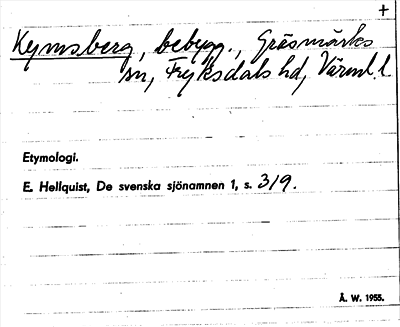 +
Kymsberg, bebygg., Gräsmarks
sn, Fryksdals hd, Värml. l.
Etymologi.
E. Hellquist, De svenska sjönamnen 1, s. 319.
Å. W. 1955.